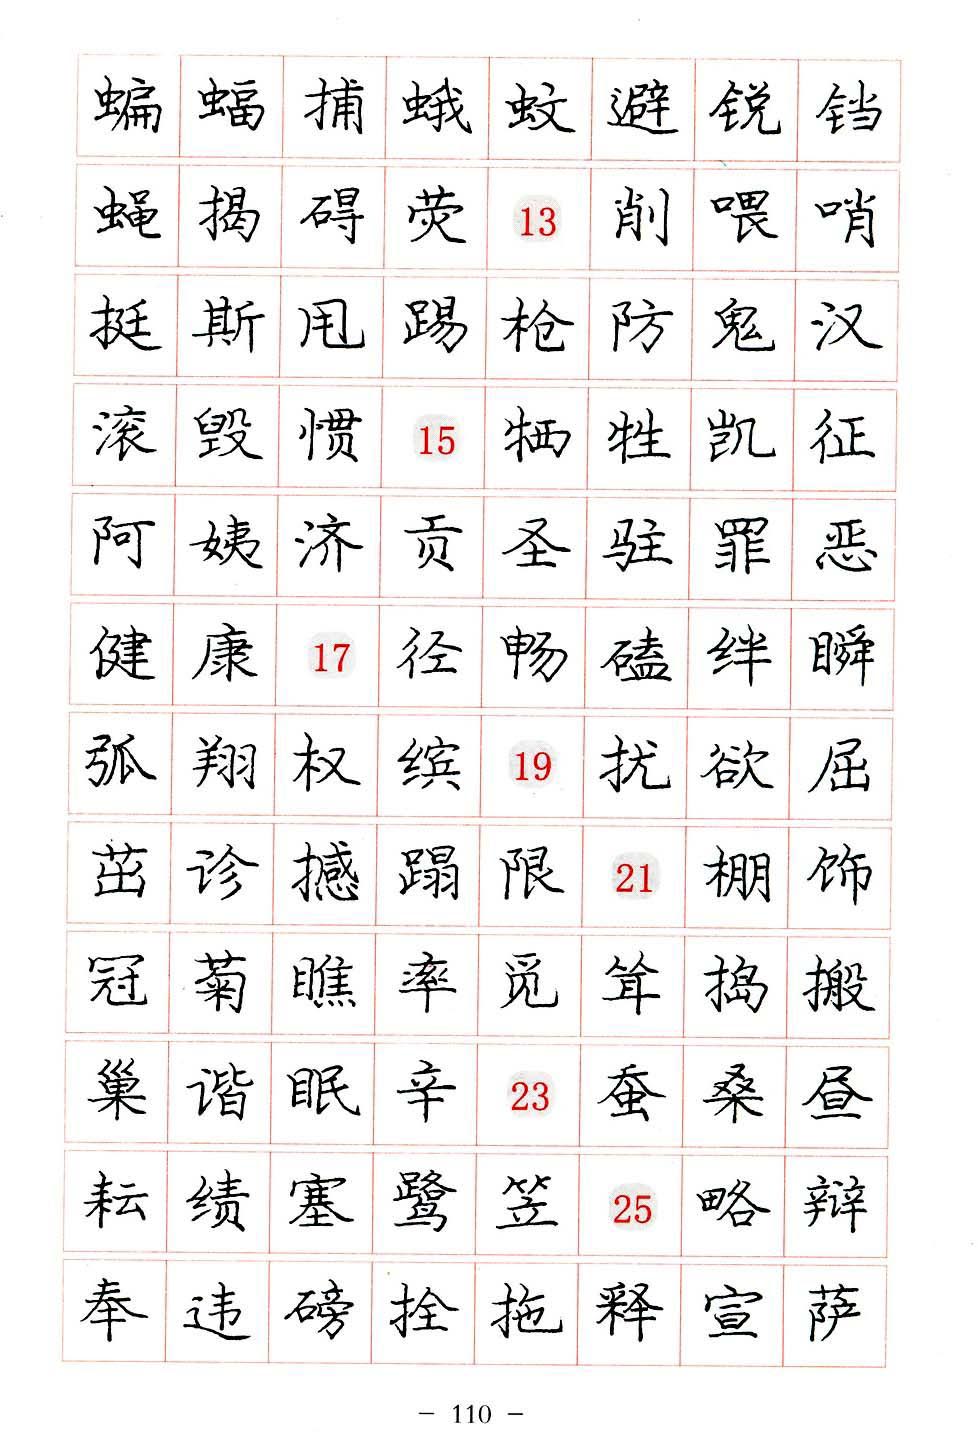 蝙蝠捕蛾蚊避锐铛
蝇揭碍荧13削喂哨
挺斯甩踢枪防鬼汉
滚毁惯15牺牲凯征
阿姨济贡圣驻罪恶
健康17径畅磕绊瞬
弧翔权缤19扰欲屈
茁诊撼蹋限21棚饰
冠菊瞧率觅耸捣搬
巢谐眠辛23蚕桑昼
耘绩塞鹭笠25略辩
奉违磅拴拖释宣萨
- 110 -